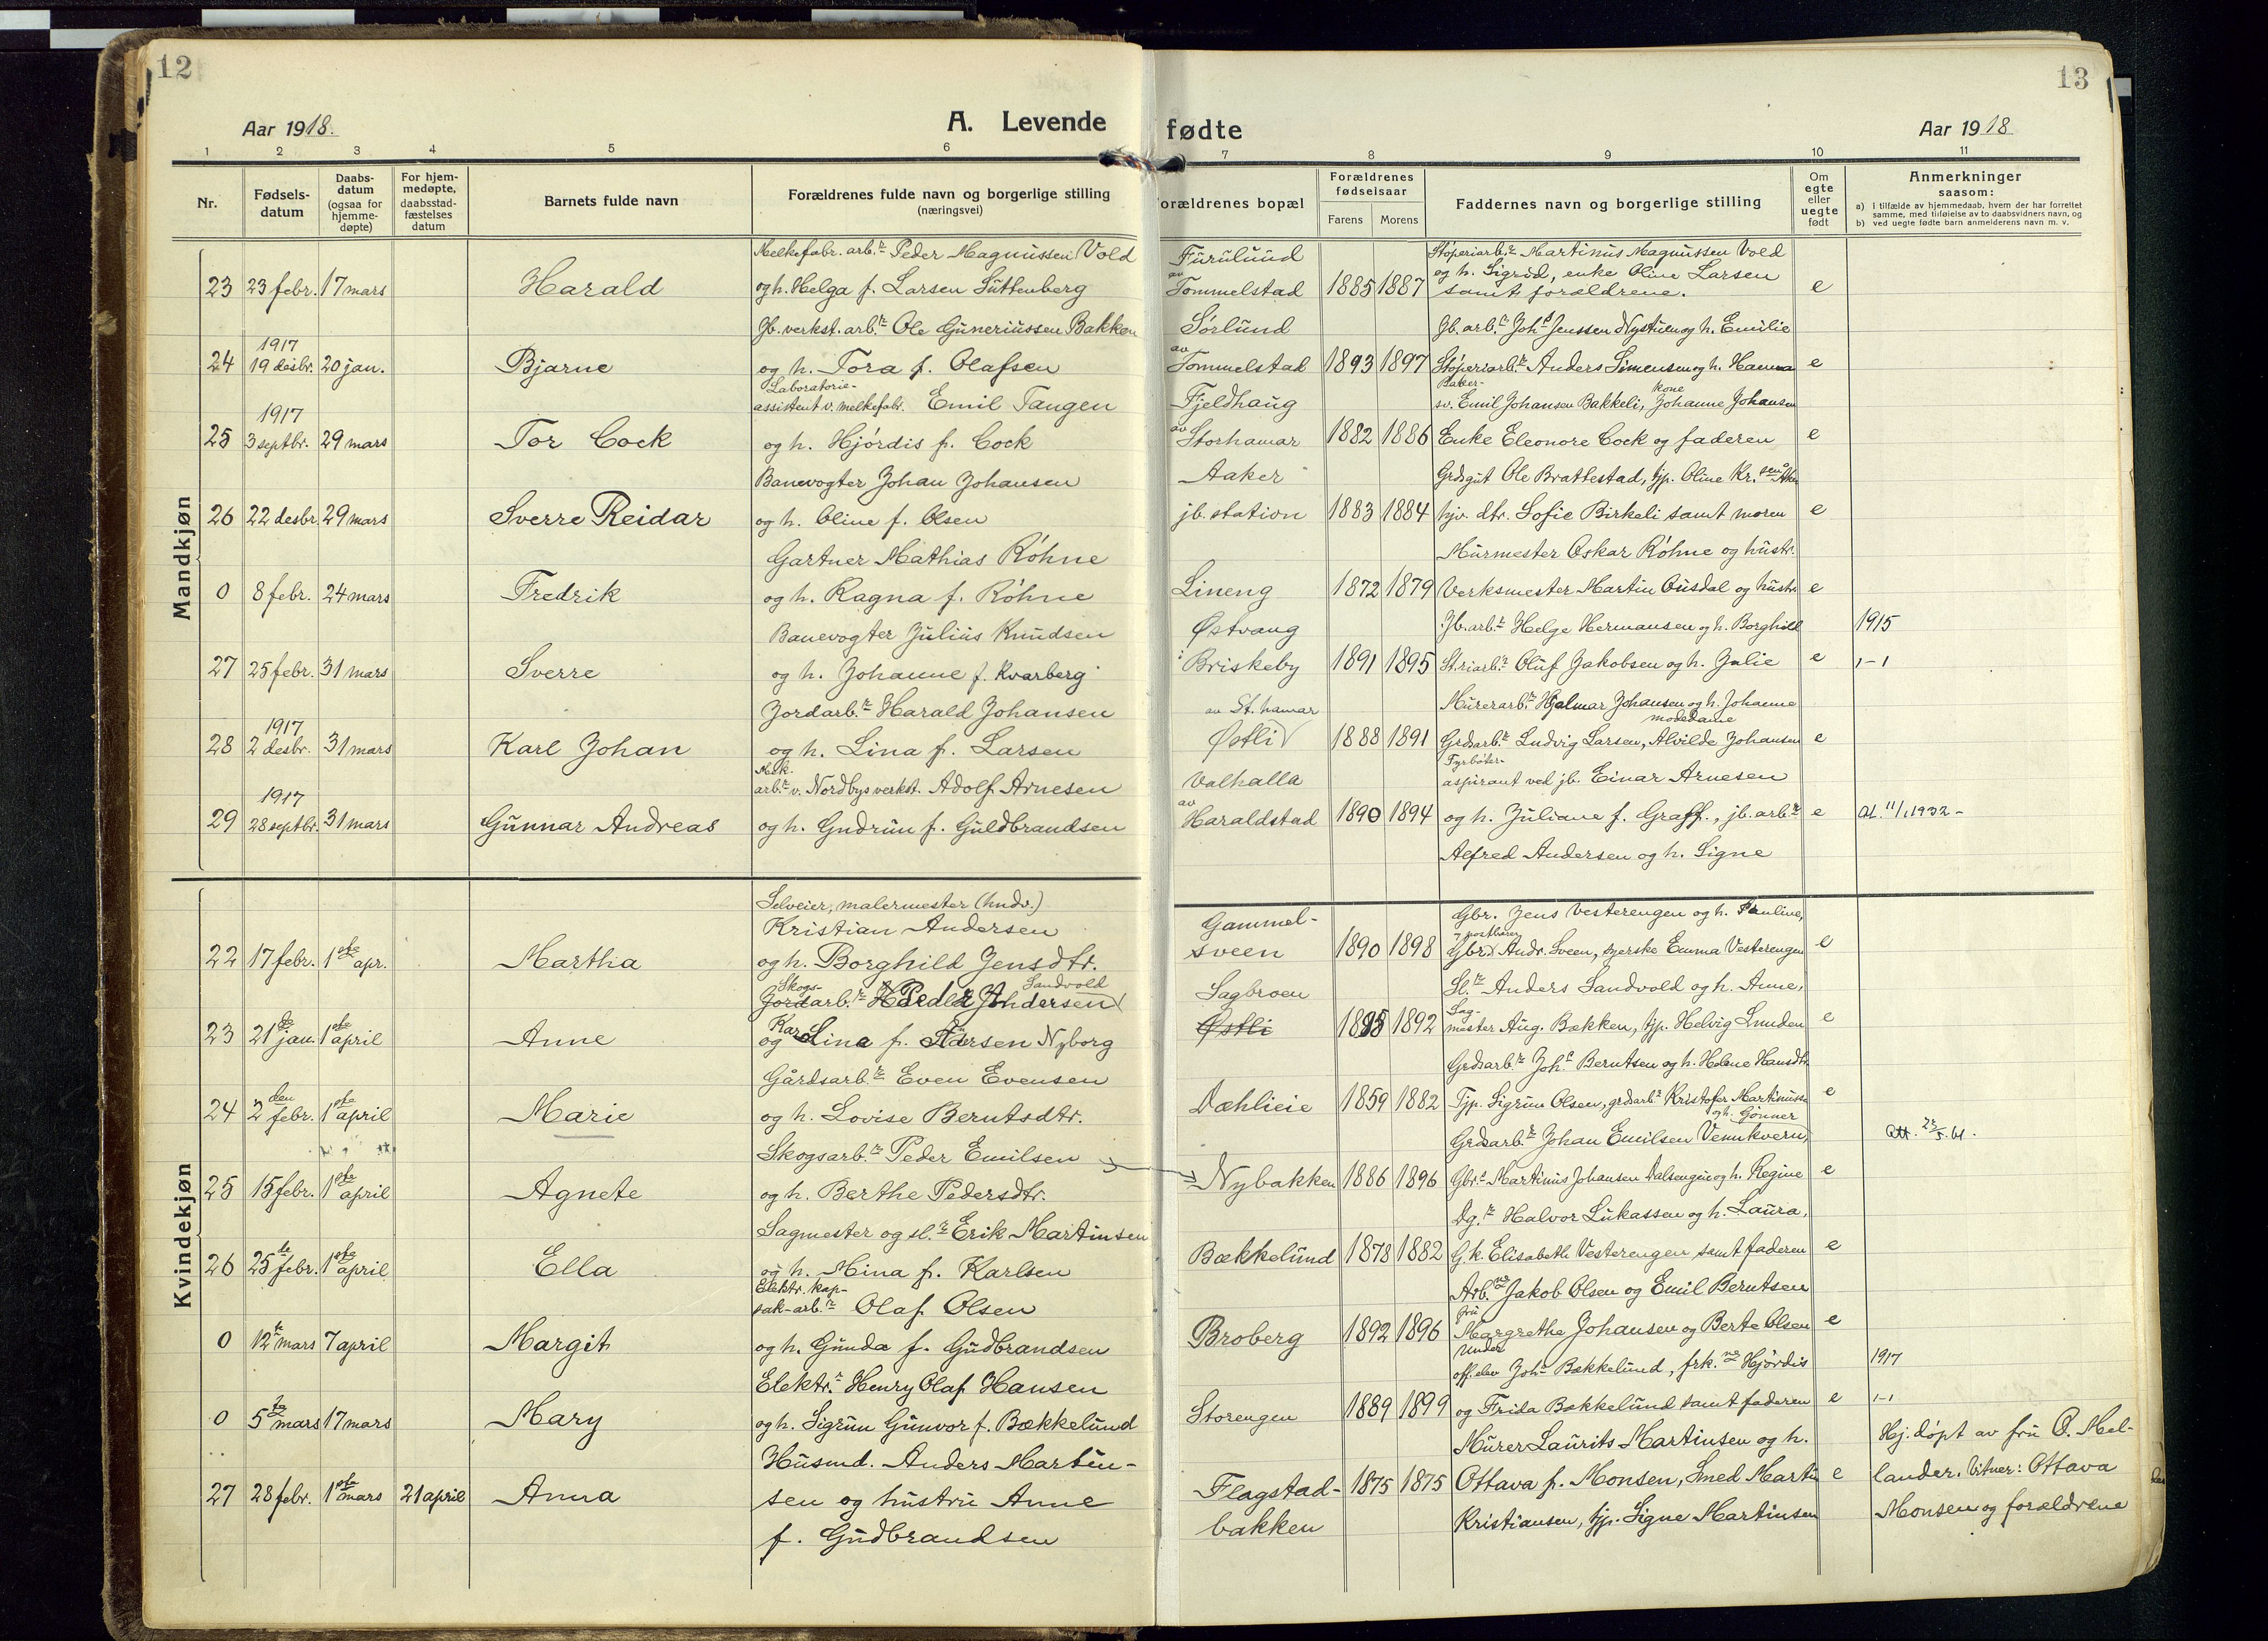 12
Aar 1918.
A. Levende
1 2 3 4 5 6
Nr. Fødsels-datum Daabs-datum (ogsaa for hjemme-døpte) For hjem-medøpte, daabsstad-fæstelses datum Barnets fulde navn Forældrenes fulde navn og borgerlige stilling (næringsvei)
Mandkjøn
Melkefabr. arb.r Peder Magnussen Vold
23 23 febr. 17 mars Harald og h. Helga f. Larsen Süttenberg
Jb. verkst. arb.r Ole Guneriussen Bakken
1917
24 19 desbr. 20 jan. Bjarne og h. Tora f. Olafsen
Laboratorie-
assistent v. melkefabr. Emil Tangen
1917
25 3 septbr. 29 mars Tor Cock og h. Hjørdis f. Cock
Banevogter Johan Johansen
26 22 desbr. 29 mars Sverre Reidar og h. Oline f. Olsen
Gartner Mathias Röhne
0 8 febr. 24 mars Fredrik og h. Ragna f. Röhne
Banevogter Julius Knudsen
27 25 febr. 31 mars Sverre og h. Johanne f. Kvarberg
Jordarb.r Harald Johansen
1917
28 2 desbr. 31 mars Karl Johan og h. Lina f. Larsen
Mek.
arb.r v. Nordbys verkst. Adolf Arnesen
1917
29 28 septbr. 31 mars Gunnar Andreas og h. Gudrun f. Guldbrandsen
Kvindekjøn
Selveier, malermester (hndv.)
Kristian Andersen
22 17 febr. 1ste apr. Martha og h. Borghild Jensdtr.
Skogs- Sandvold
arb.r Peder Andersen
23 21de jan. 1ste april Anne og Karoline f. Nyborg
Gårdsarb.r Even Evensen
24 2den febr. 1ste april Marie og h. Lovise Berntsdtr.
Skogsarb.r Peder Emilsen
25 15 febr. 1ste april Agnete og h. Berthe Pedersdtr.
Sagmester og sl.r Erik Martinsen
26 25de febr. 1ste april Ella og h. Mina f. Karlsen
Elektr. kap-
sak-arb.r Olaf Olsen
0 12te mars 7 april Margit og h. Gunda f. Gudbrandsen
Elektr.r Henry Olaf Hansen
0 5te mars 17 mars Mary og h. Sigrun Gunvor f. Bækkelund
Husmd. Anders Martin-
27 28 febr. 1ste mars 21 april Anna sen og hustru Anne
f. Gudbrandsen
13
fødte
Aar 1918
7 8 9 10 11
Forældrenes bopæl Forældrenes fødselsaar Farens Morens Faddernes navn og borgerlige stilling Om egte eller uegte født Anmerkninger saasom:
a) i tilfælde av hjemmedaab, hvem der har forrettet samme, med tilføielse av to daabsvidners navn, og
b) ved uegte fødte barn anmelderens navn m. v.
Furulund Støperiarb.r Martinus Magnussen Vold
av og h. Sigrid, enke Oline Larsen
Tommelstad 1885 1887 samt forældrene. e
Sørlund Jb. arb.r Joh.s Jenssen Nystuen og h. Emilie
av
Tommelstad 1893 1897 Støperiarb.r Anders Simensen og h. Hanna e
Baker- kone
Fjeldhaug sv. Emil Johansen Bakkeli, Johanne Johansen
av
Storhamar 1882 1886 Enke Eleonore Cock og faderen e
Aaker Grdsgut Ole Brattestad, tjp. Oline Kr.sen
jb. station 1883 1884 hjv. dtr. Sofie Birkeli samt moren e
Murmester Oskar Röhne og hustr.
Lineng 1872 1879 Verksmester Martin Ousdal og hustr. e
Østvang Jb. arb.r Helge Hermansen og h. Borghild 1915
i Briskeby 1891 1895 St.riarb.r Oluf Jakobsen og h. Julie e 1-1
av St. hamar Murerarb.r Hjalmar Johansen og h. Johanne
modedame
Østli 1888 1891 Grdsarb.r Ludvig Larsen, Alvilde Johansen e
Fyrbøter-
Valhalla aspirant ved jb. Einar Arnesen
av
Haraldstad 1890 1894 og h. Juliane f. Graff., jb. arb.r e At. 11/1 1932-
Alfred Andersen og h. Signe
Gammel- Gbr. Jens Vesterengen og h. Pauline,
postbærer
sveen 1890 1898 Gbr. Andr. Sveen, syerske Emma Vesterengen e
Sagbroen Sl.r Anders Sandvold og h. Anne,
Sag-
Østli 1885 1892 mester Aug. Bækken, tjp. Helvig Lunden e
Grdsarb.r Joh.s Berntsen og h. Helene Hansdtr.
Dæhlieie 1859 1882 Tjp. Sigrun Olsen, grdsarb.r Kristofer Martinussen e
og h. Gunner
Grdsarb.r Johan Emilsen Vennkvern, Att. 23/5.61.
Nybakken 1886 1896 Gbr.r Martinus Johansen Dalsengen og h. Regine e
Dg.r Halvor Lukassen og h. Laura,
Bækkelund 1878 1882 G.k. Elisabeth Vesterengen samt faderen e
Arb.ne Jakob Olsen og Emil Berntsen
fru
Broberg 1892 1896 Margrethe Johansen og Berte Olsen e
Under
off. elev Joh. Bækkelund, frk.ne Hjördis 1917
Storengen 1889 1899 og Frida Bækkelund samt faderen e 1-1
Murer Laurits Martinsen og h. Hj. døpt av fru O. Mel-
Flagstad- 1875 1875 Ottava f. Monsen, Smed Martin e lander. Vitner: Ottava
bakken Kristiansen, tjp. Signe Martinsen Monsen og forældrene